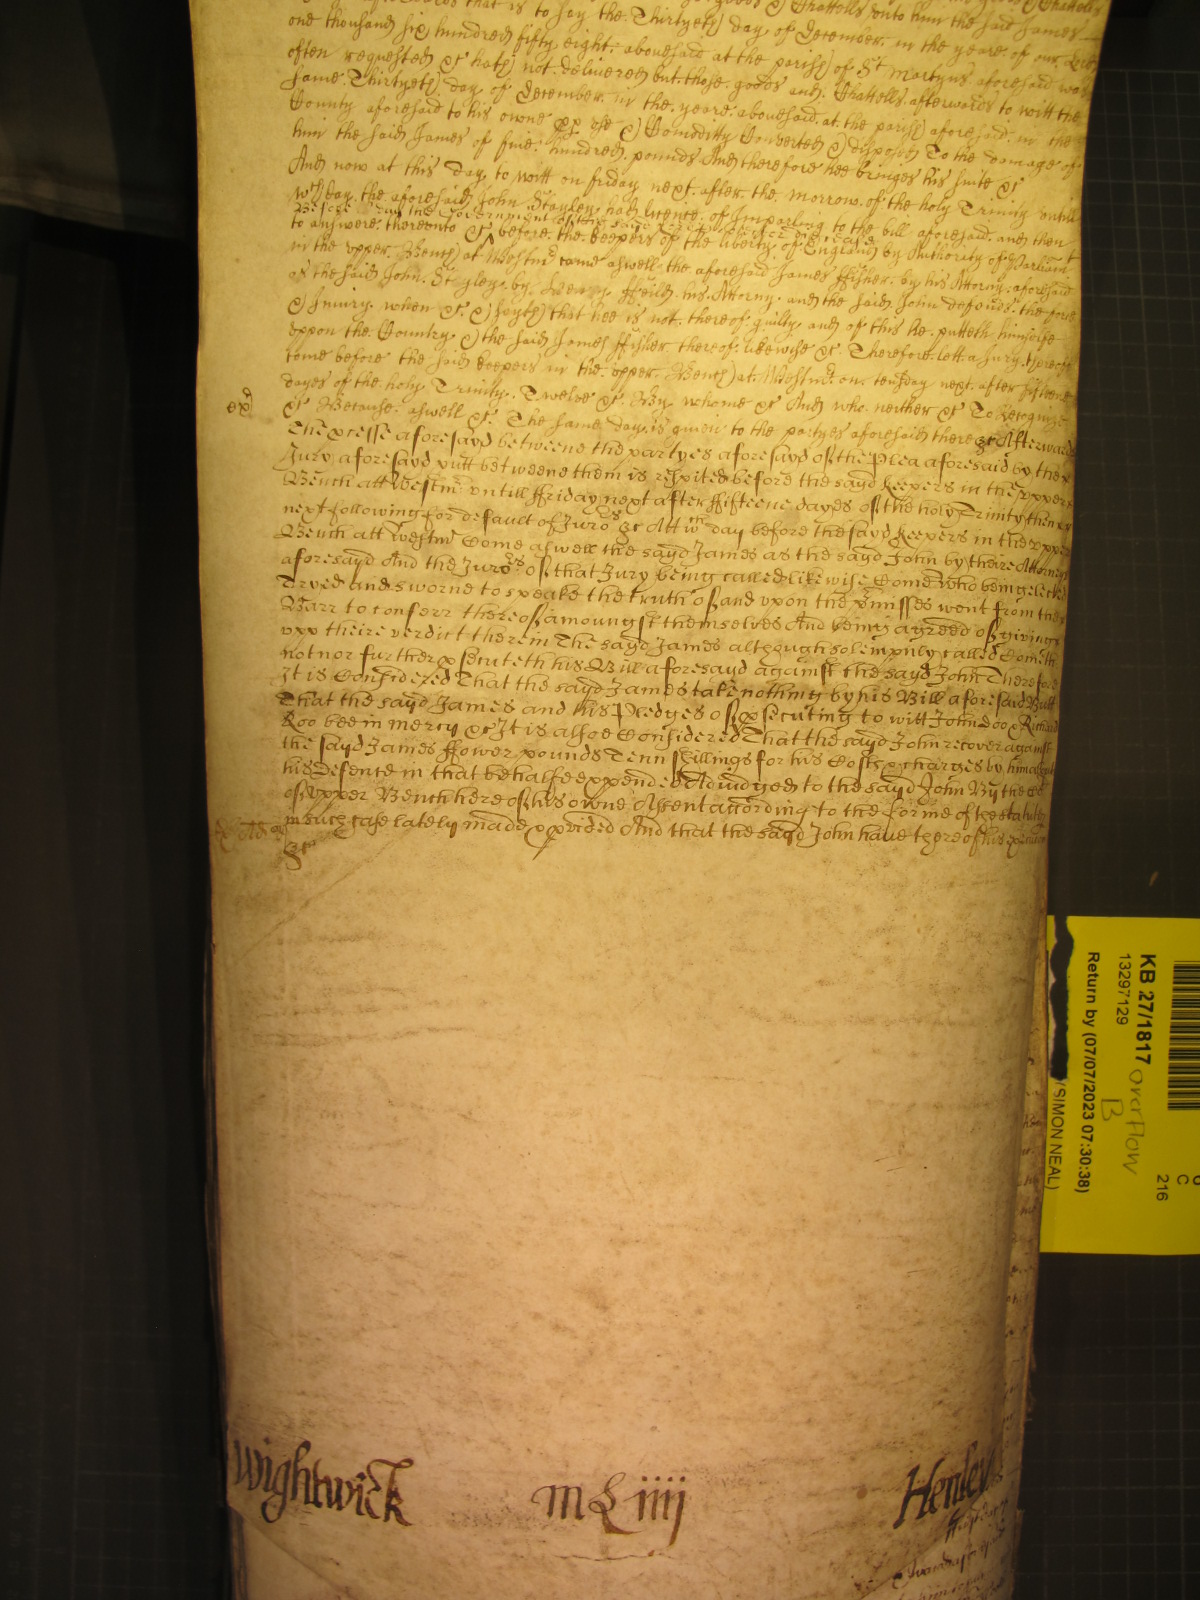 one thousand six hundred fifty eight abovesaid at the parish of St Martyns aforesaid was
often requested &c hath not delivered but those goods and Chattells afterwards to witt the
same Thirtyeth day of December in the yeare abovesaid at the parish aforesaid in the
County aforesaid to his owne pp use & Comoditty Converted & disposed To the damage of
him the said James of five hundred pounds And therefore hee bringes his suite &c
And now at this day to witt on friday next after the morrow of the holy Trinity untill
wch day the aforesaid John Stayley had licence of Imparling to the bill aforesaid and then
to answere thereunto &c before the keepers of the liberty of England by Authority of Parliamt
in the upper Bench at Westmr came aswell the aforesaid James ffisher by his Attorny aforesaid
as the said John Stayley by Henry ffeild his Attorny and the said John defends the force
& Iniury when &c & sayth that hee is not thereof guilty and of this he putteth himselfe
uppon the Country & the said James ffisher thereof likewise &c Therefore lett a Jury thereof
come before the said keepers in the upper Bench at Westmr on tuesday next after fifteene
dayes of the holy Trinity Twelve &c By whome &c And who neither &c To Recognize
&c Because aswell &c The same day is given to the partyes aforesaid there &c Afterwards
exd
the pcesse aforesayd betweene the partyes aforesayd of the Plea aforesaid by the
Jury aforesayd putt betweene them is respited before the sayd keepers in the upper
Bench att Westmr untill ffriday next after ffifteene dayes of the holy Trinity then
next following for default of Jurors &c Att wch day before the sayd keepers in the upper
Bench att Westmr Come aswell the sayd James as the sayd John by theire Attorneys
aforesayd And the Jurors of that Jury being called likewise Come who being elected
Tryed and sworne to speake the truth of and upon the pmisses went from the
Barr to conferr thereof amoungst themselves And being agreed of giving
upp theire verdict therein The sayd James although solempnly called Cometh
not nor further psecuteth his Bill aforesayd against the sayd John Therefore
It is Considered That the sayd James take nothing by his Bill aforesaid But
That the sayd James and his Pledges of psecuting to witt John Doo & Richard
Roo bee in mercy &c It is alsoe Considered That the sayd John recover against
the sayd James ffower pounds Tenn shillings for his Costs & charges by him about
his Defence in that behalfe expended Adiudged to the sayd John By the Court
of Upper Bench here of his owne Assent according to the forme of the statute
in such case lately made & pvided And that the sayd John have thereof his execucon
&c
Wightwick
mLiiij
Henley
KB 27/1817
13297129
Return by (07/07/2023 07:30:38)
(SIMON NEAL)
overflow
B
216
C